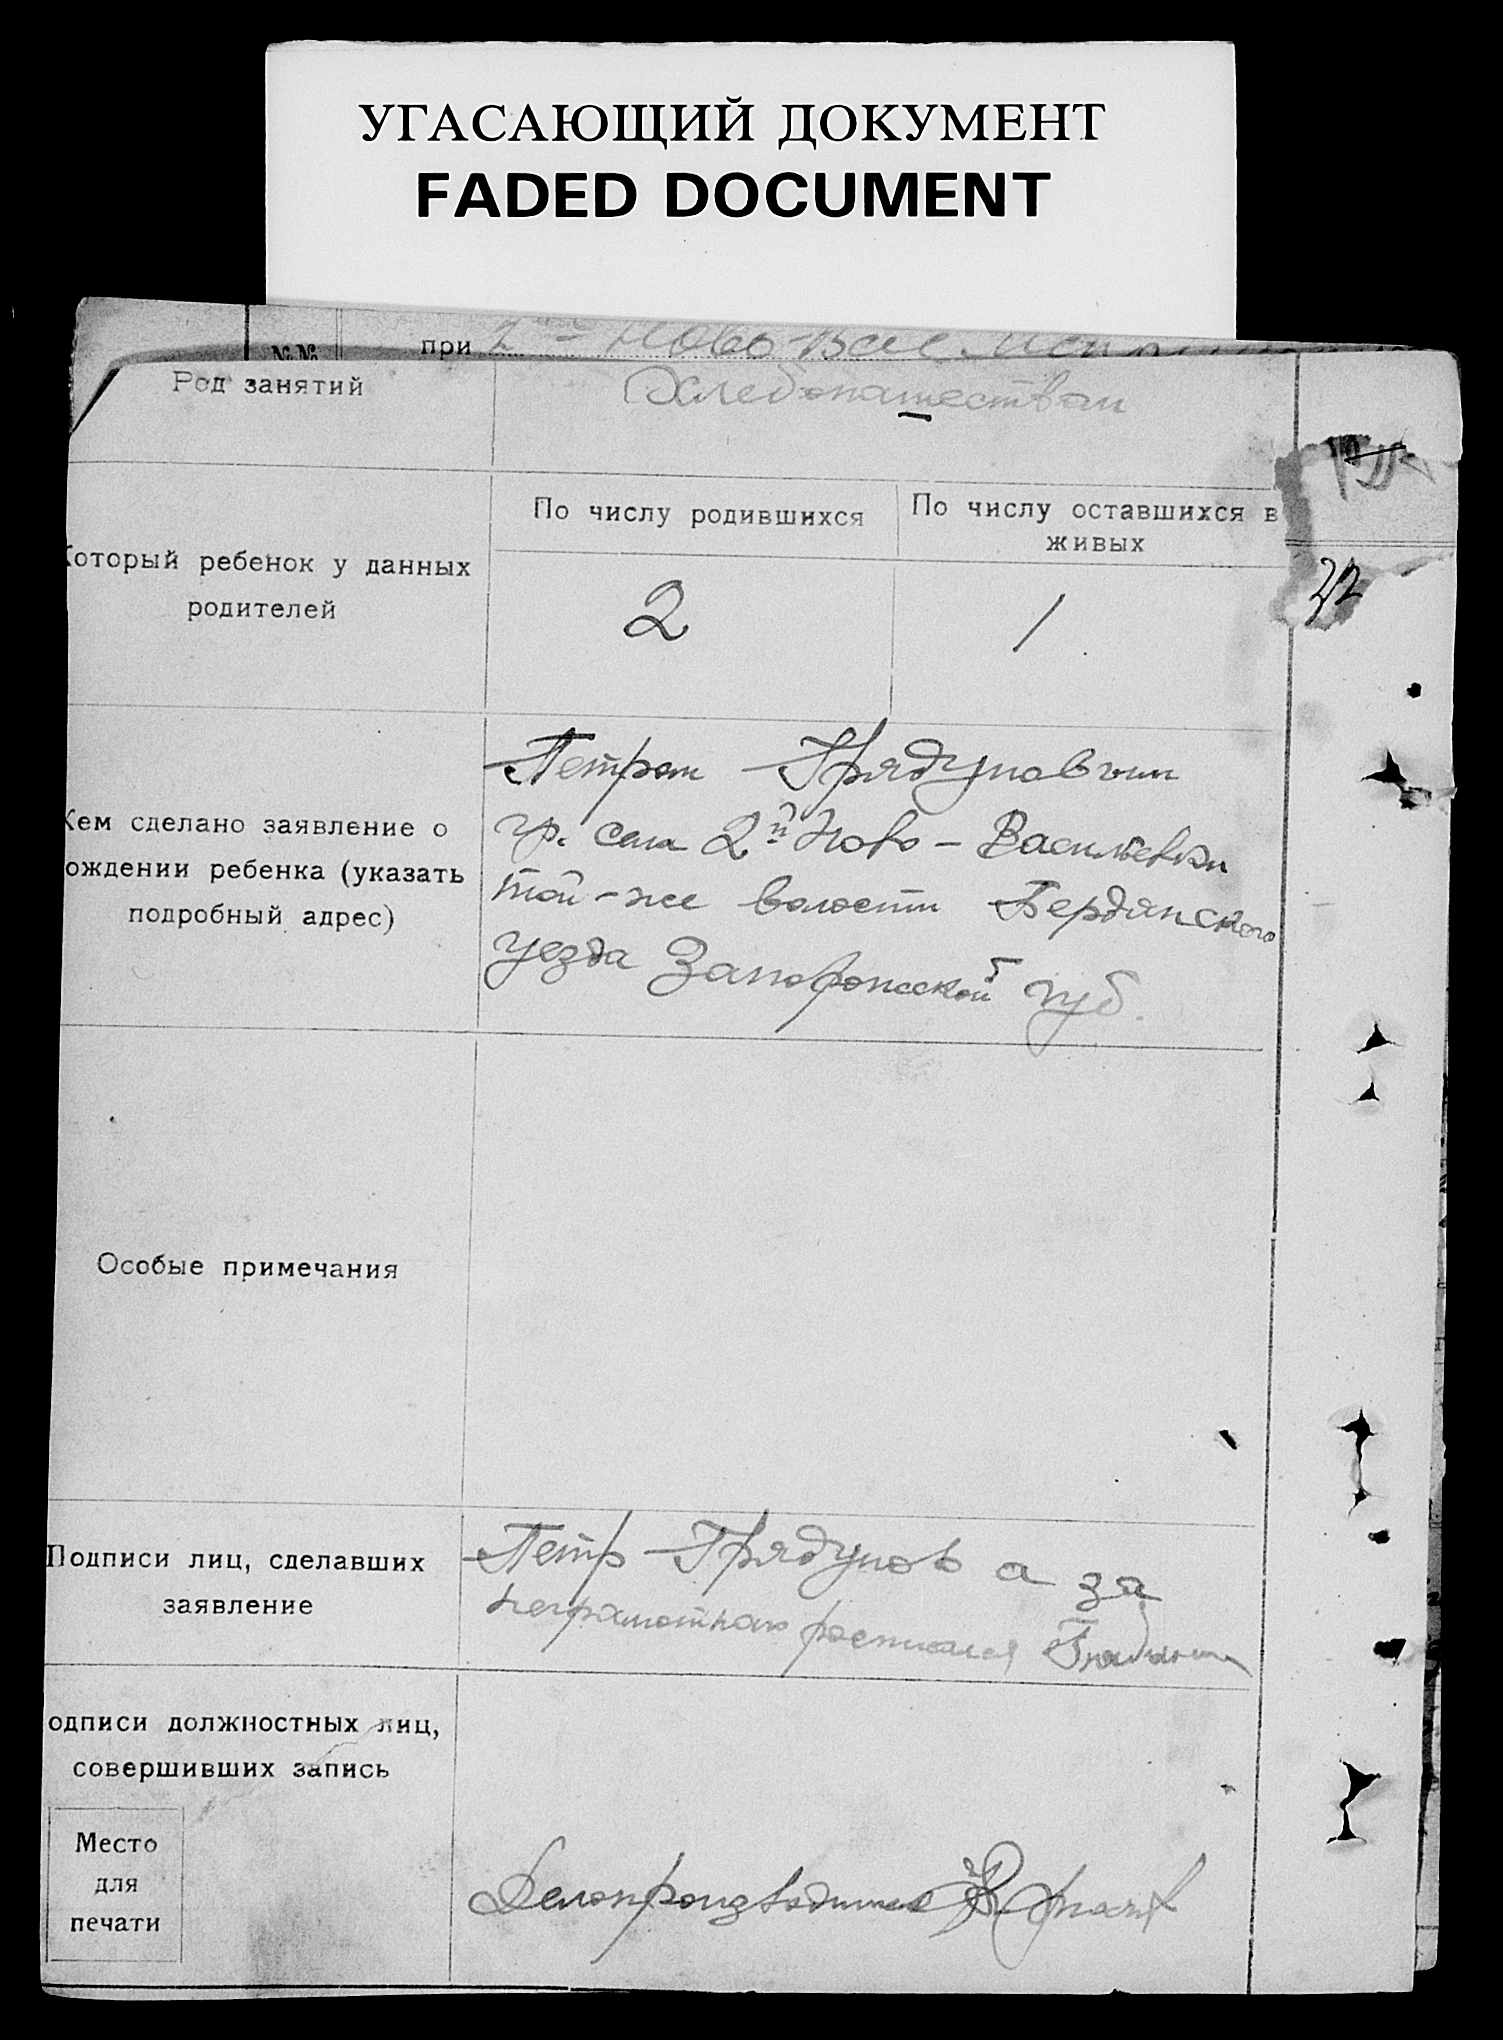 УГАСАЮЩИЙ ДОКУМЕНТ
FADED DOCUMENT
№№ при 2 Ново-Вас.
Род занятий
Хлебопашеством
Который ребенок у данных
родителей
По числу родившихся
По числу оставшихся в
живых
2
1
22
Кем сделано заявление о
рождении ребенка (указать
подробный адрес)
Петром Грядуновым
гр. села 2й Ново-Васильевки
той-же волости Бердянского
уезда Запорожской губ.
Особые примечания
Подписи лиц, сделавших
заявление
Петр Грядунов а за
неграмотного росписался
Подписи должностных лиц,
совершивших запись
Место
для
печати
Делопроизводитель